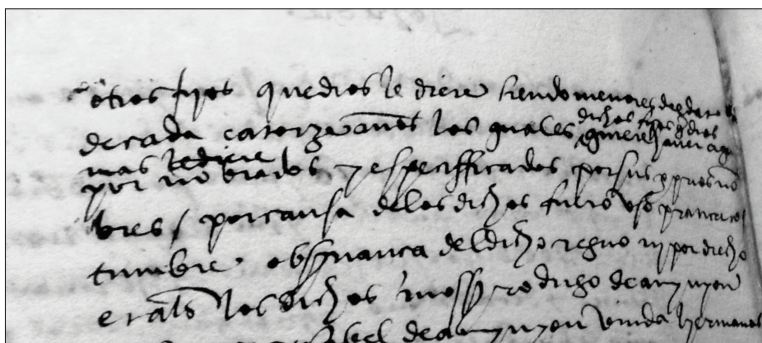 otros fijos que dios le diere siendo menores de edat
de cada catorze anos los quales dichos fijos q dios
mas le diere quiere aver aqui
por nobrados y espeçifficados por sus propios no
bres / por causa de los dichos fuero uso pratica cos
tumbre obseruança del dicho regno ni por dicho
erats los dichos mossen rodrigo de anynyon
de anynyon viuda hermanos